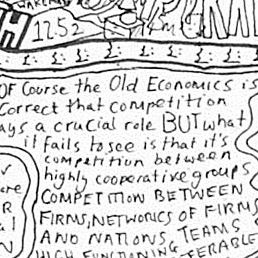 H 12.52
£: £: £: £: £:
OF Course the Old Economics is
Correct that competition
a crucial role BUT what
it fails to see is that it's
competition between
highly cooperative groups
COMPETITION BETWEEN
FIRMS, NETWORKS OF FIRMS
AND NATIONS, TEAMS
HIGH FUNCTIONING